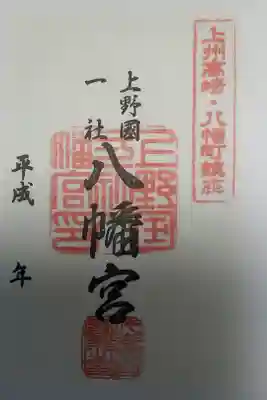 上州高崎・八幡町鎮座
上野國
一社
八幡宮
平成 年